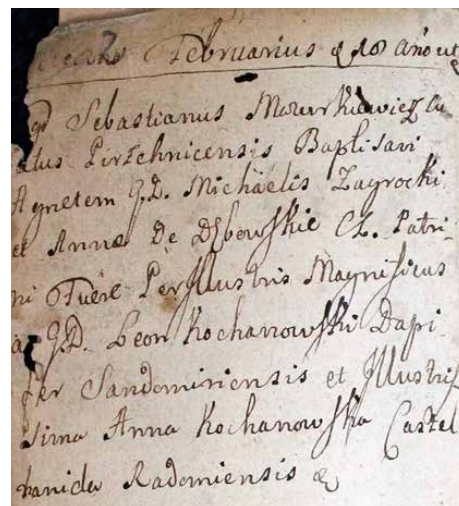 Februarius d 18 Anō ut
Sebastianus Mourkiewicz Cu
atus Pirzchnicensis Baptisavi
Agnetem G.D. Michäelis Zagrocki
et Annæ De Dębowskie CL. Patri-
ni Fuêre PerIllustris Magnificus
G.D. Leon Kochanowski Dapi-
fer Sandomiriensis et Illustris
sima Anna Kochanowska Castel
lanida Radomiensis